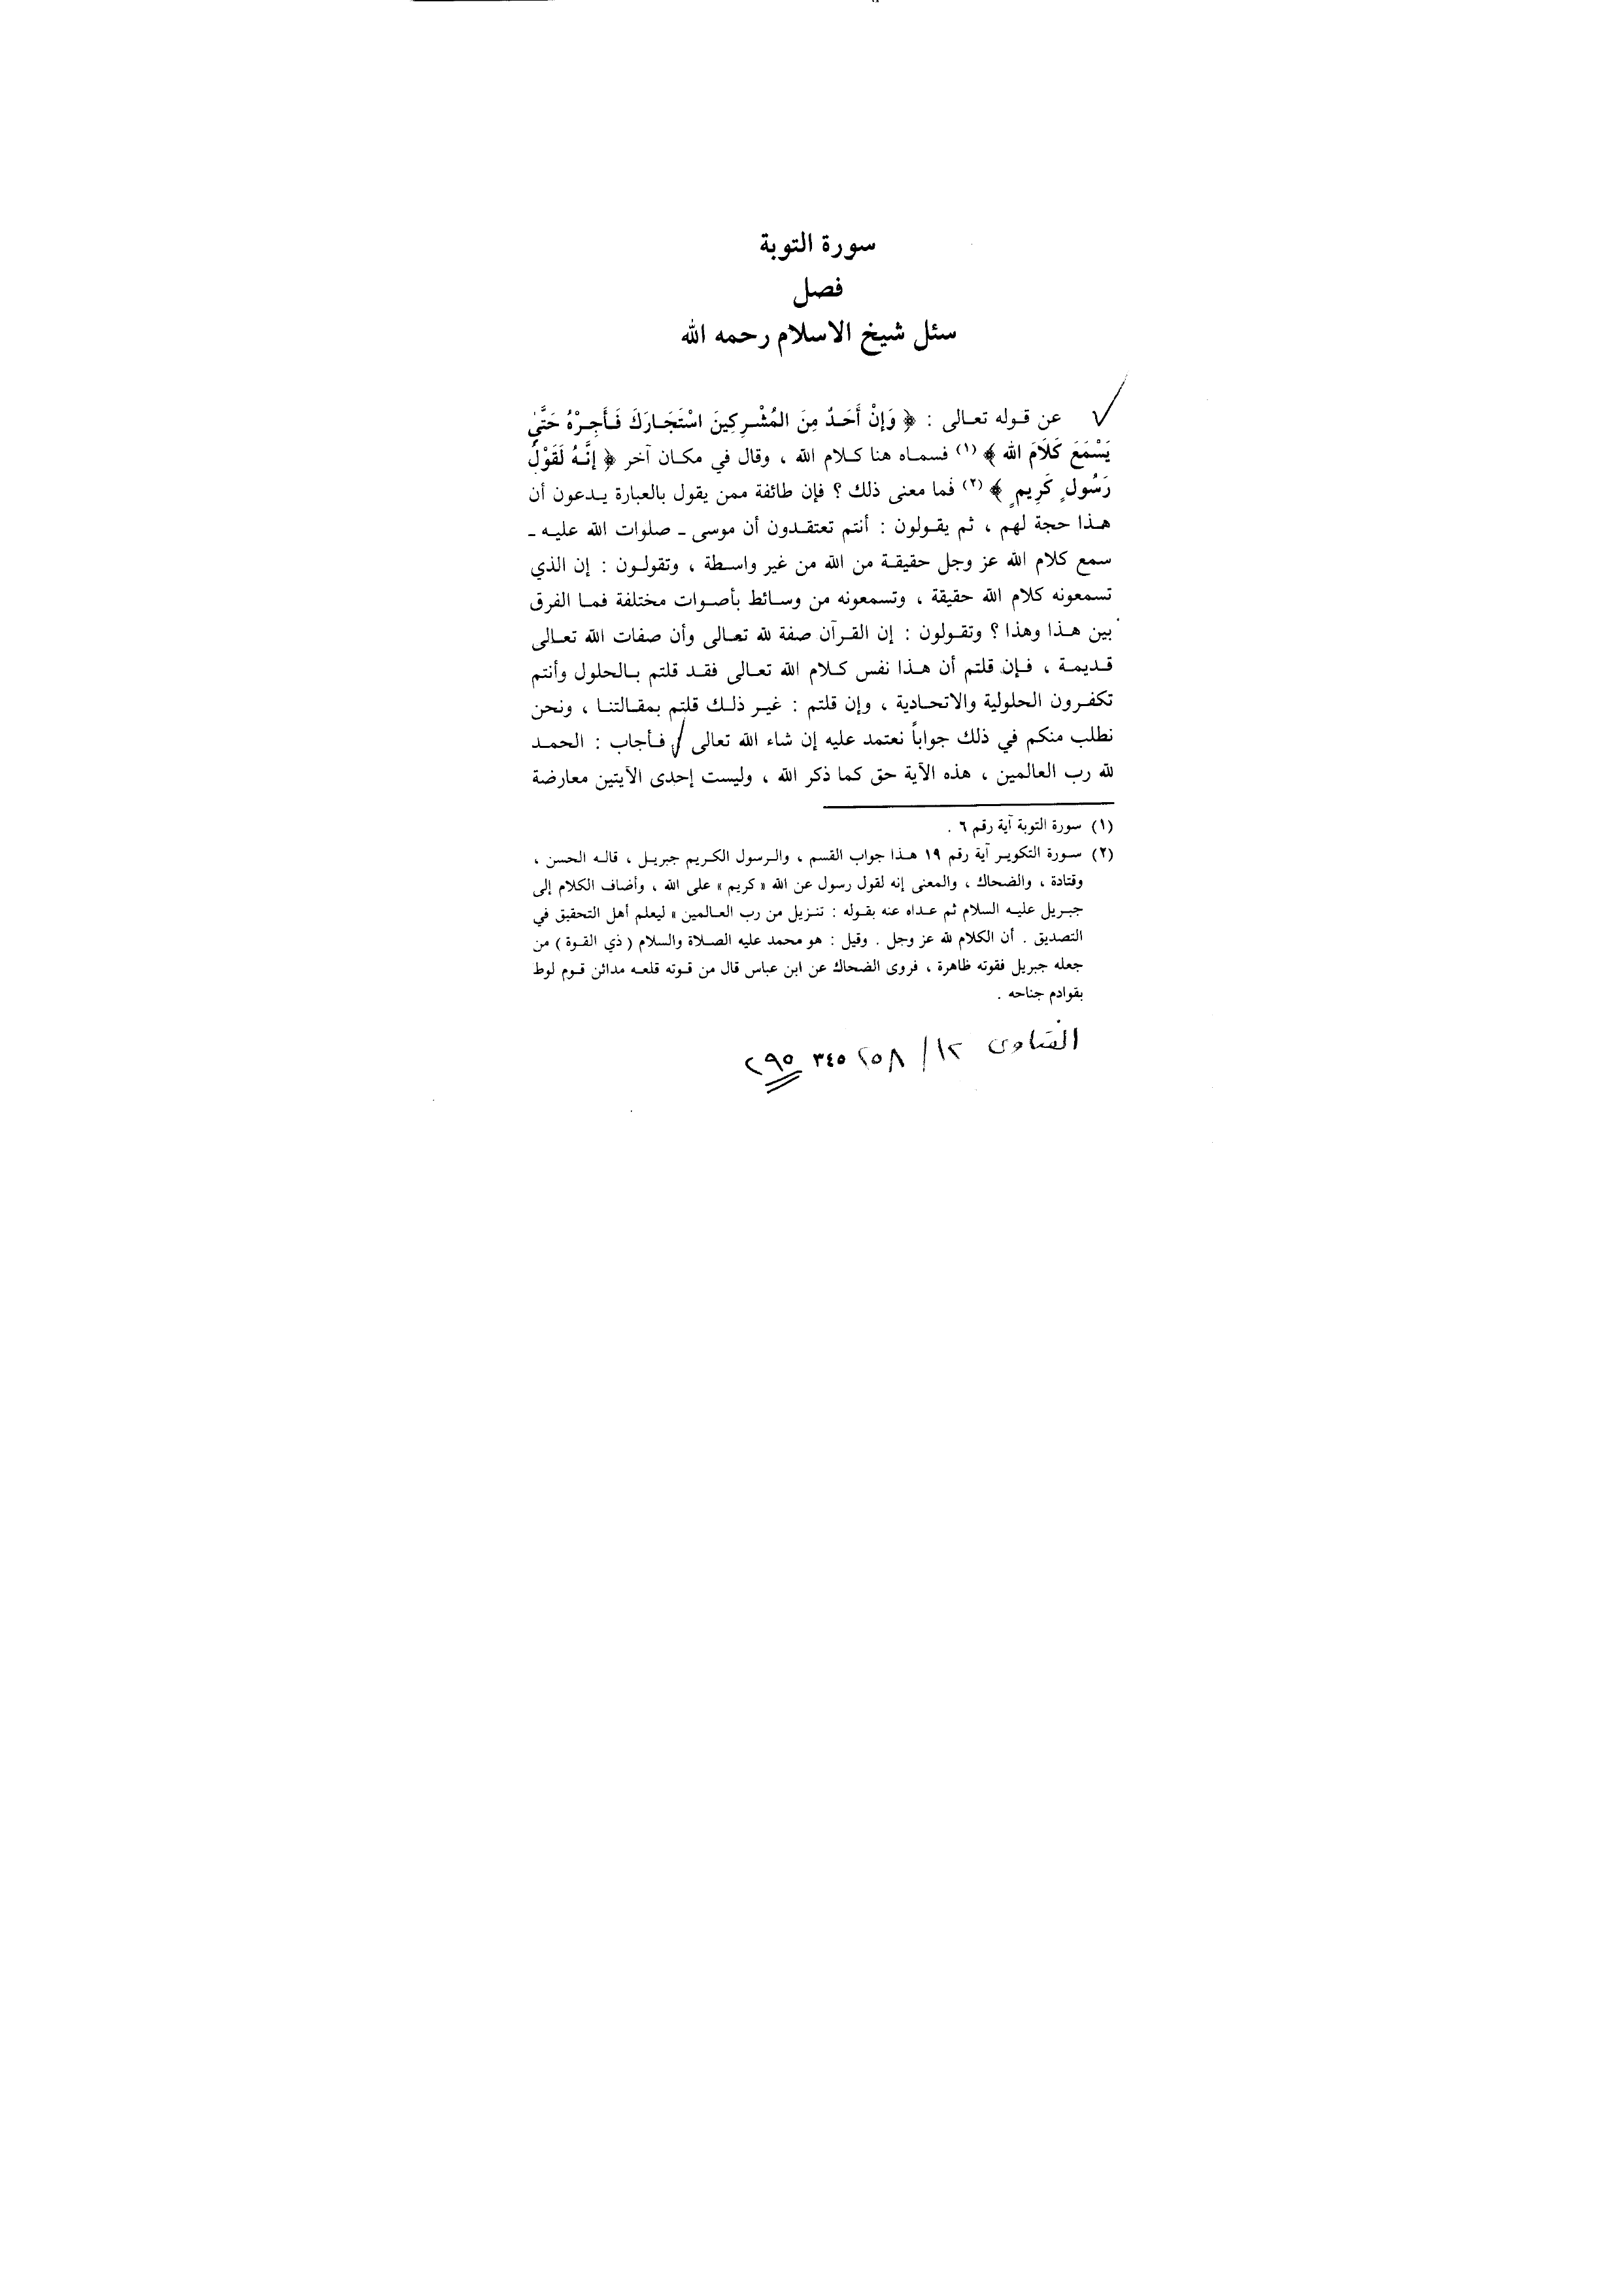 سورة التوبة
فصل
سئل شيخ الاسلام رحمه الله
عن قوله تعالى : ﴿ وَإِنْ أَحَدٌ مِنَ المُشْرِكِينَ اسْتَجَارَكَ فَأَجِرْهُ حَتَّىٰ
يَسْمَعَ كَلَامَ الله ﴾ (١) فسماه هنا كلام الله ، وقال في مكان آخر ﴿ إنَّهُ لَقَوْلُ
رَسُولٍ كَرِيمٍ ﴾ (٢) فما معنى ذلك ؟ فإن طائفة ممن يقول بالعبارة يدعون أن
هذا حجة لهم ، ثم يقولون : أنتم تعتقدون أن موسى ـ صلوات الله عليه ـ
سمع كلام الله عز وجل حقيقة من الله من غير واسطة ، وتقولون : إن الذي
تسمعونه كلام الله حقيقة ، وتسمعونه من وسائط بأصوات مختلفة فما الفرق
بين هذا وهذا ؟ وتقولون : إن القرآن صفة لله تعالى وأن صفات الله تعالى
قديمة ، فإن قلتم أن هذا نفس كلام الله تعالى فقد قلتم بالحلول وأنتم
تكفرون الحلولية والاتحادية ، وإن قلتم : غير ذلك قلتم بمقالتنا ، ونحن
نطلب منكم في ذلك جواباً نعتمد عليه إن شاء الله تعالى / فأجاب : الحمد
لله رب العالمين ، هذه الآية حق كما ذكر الله ، وليست إحدى الآيتين معارضة
(١) سورة التوبة آية رقم ٦ .
(٢) سورة التكوير آية رقم ١٩ هذا جواب القسم ، والرسول الكريم جبريل ، قاله الحسن ،
وقتادة ، والضحاك ، والمعنى إنه لقول رسول عن الله « كريم » على الله ، وأضاف الكلام إلى
جبريل عليه السلام ثم عداه عنه بقوله : تنزيل من رب العالمين » ليعلم أهل التحقيق في
التصديق . أن الكلام لله عز وجل . وقيل : هو محمد عليه الصلاة والسلام ( ذي القوة ) من
جعله جبريل فقوته ظاهرة ، فروى الضحاك عن ابن عباس قال من قوته قلعه مدائن قوم لوط
بقوادم جناحه .
الفتاوى ١٢/ ٢٥٨ ٣٤٥ ٢٩٥